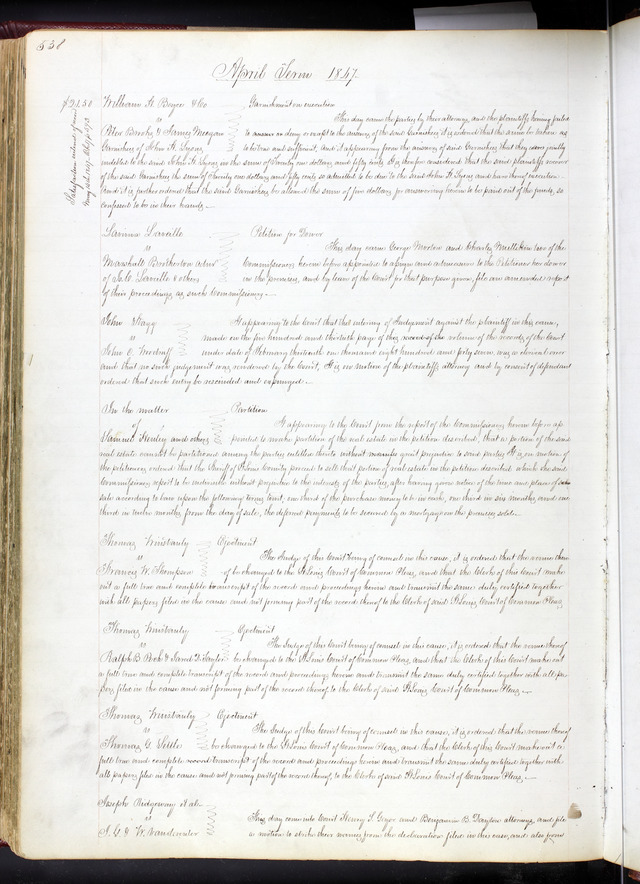 538
April Term 1847
$21.50
Satisfaction entered of record
William H Boyce & Co Garnishment on execution
vs This day came the parties by their attorneys and the plaintiffs having failed
Peter Brooks & James Meegan to answer or deny or except to the answer of the said Garnishees, it is ordered that the same be taken as
Garnishees of John H. to be true and sufficient, and it appearing from the answer of said Garnishees that they are jointly
indebted to the said John H. in the sum of Twenty one dollars and fifty cents. It is therefore considered that the said plaintiffs recover
of the said Garnishees the sum of Twenty one dollars and fifty cents so admitted to be due to the said John H. and have thereof execution
And it is further ordered that the said Garnishees be allowed the sum of five dollars for answering herein to be paid out of the funds, so
confessed to be in their hands.
Petition for Dower
vs This day came George Morton and Charles two of the
Marshall Brotherton admr Commissioners herein before appointed to assign and admeasure to the Petitioner her dower
& others in the premises, and by leave of the Court for that purpose given, file an amended report
of their proceedings as such Commissioners.
John It appearing to the Court that the entering of Judgment against the plaintiff in this cause,
vs made on the five hundred and thirtieth page of the volume of the records of the Court
John under date of February thirteenth one thousand eight hundred and forty seven, was a clerical error
and that no such judgment was rendered by the Court, It is on motion of the plaintiffs attorney and by consent of defendant
ordered that such entry be rescinded and expunged.
In the matter Partition
of It appearing to the Court from the report of the Commissioners herein before ap
and others pointed to make partition of the real estate in the petition described, that a portion of the said
real estate cannot be partitioned among the parties entitled thereto without great prejudice to said parties It is on motion of
the petitioners, ordered that the Sheriff of St Louis County proceed to sell that portion of real estate in the petition described which the said
Commissioners report to be indivisible without prejudice to the interests of the parties, after having given notice of the time and place of
sale according to law upon the following terms, to wit, one third of the purchase money to be in cash, one third in six months, and one
third in twelve months, from the day of sale, the deferred payments to be secured by a mortgage on the premises sold.
Thomas Winstanly Ejectment
vs The Judge of this Court being of counsel in this cause, it is ordered that the venue thereof
Francis W. Thompson be changed to the St Louis Court of Common Pleas, and that the Clerk of this Court make
out a full true and complete transcript of the record and proceedings herein and transmit the same duly certified together
with all papers filed in the cause and not forming part of the record thereof to the Clerk of said St Louis Court of Common Pleas
Thomas Winstanly Ejectment
vs The Judge of this Court being of counsel in this cause, it is ordered that the venue thereof
Ralph B & Taylor be changed to the St Louis Court of Common Pleas, and that the Clerk of this Court make out
a full true and complete transcript of the record and proceedings herein and transmit the same duly certified together with all pa
pers filed in the cause and not forming part of the record thereof, to the Clerk of said St Louis Court of Common Pleas.
Thomas Winstanly Ejectment
vs The Judge of this Court being of counsel in this cause, it is ordered that the venue thereof
Thomas G. be changed to the St Louis Court of Common Pleas, and that the Clerk of this Court make out a
full true and complete transcript of the record and proceedings herein and transmit the same duly certified together with
all papers filed in the cause and not forming part of the record thereof, to the Clerk of said St Louis Court of Common Pleas.
Joseph Ridgeway et al
vs This day come into Court Henry S. Geyer and Benjamin B. Dayton attorneys, and file
& W. Vandewater a motion to strike their names from the declaration filed in this case, and also from